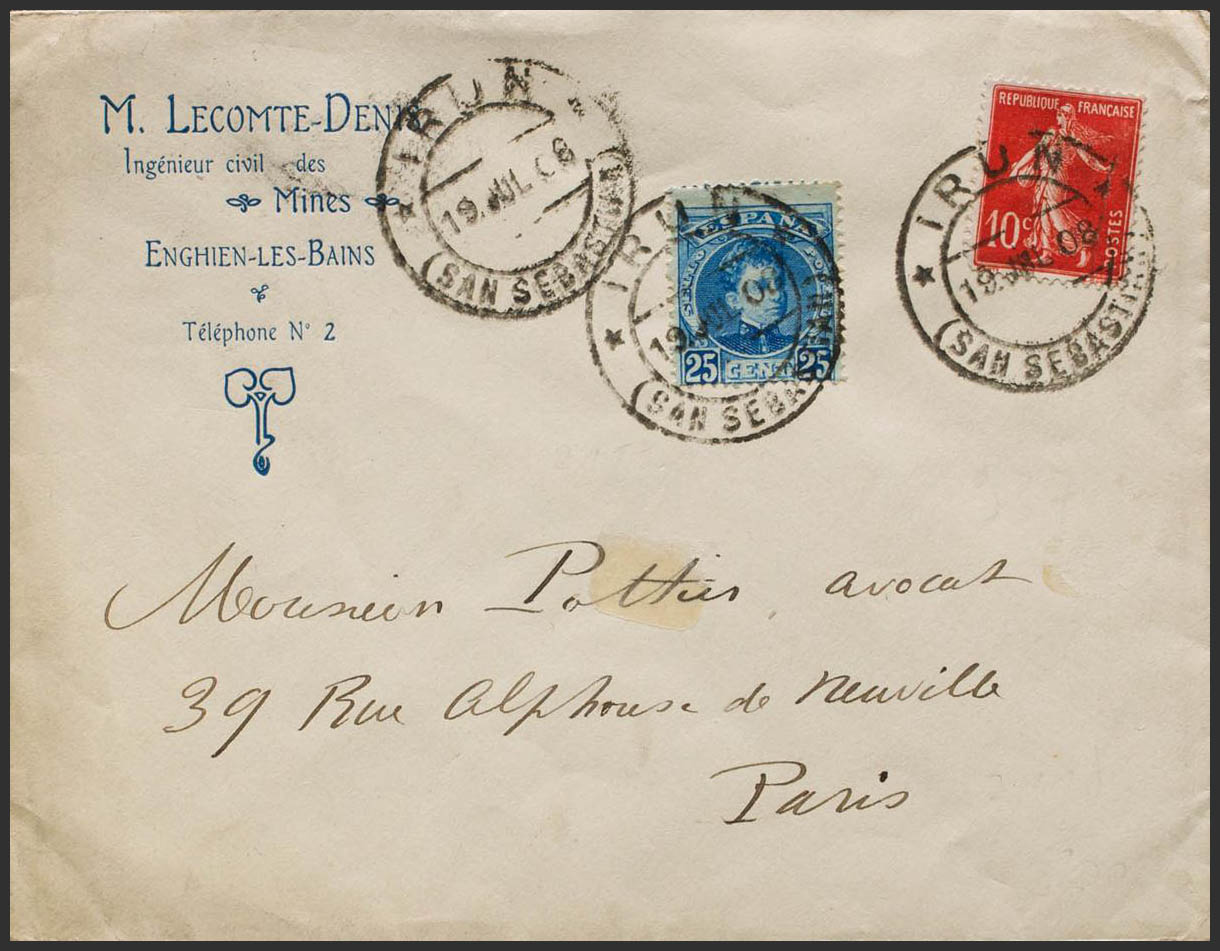 M. LECOMTE-DENIS
Ingénieur civil des
Mines
ENGHIEN-LES-BAINS
Téléphone N° 2
IRUN
19.JUL 08
(SAN SEBASTIAN)
ESPAÑA
25 CENT 25
IRUN
19.JUL 08
(SAN SEBASTIAN)
REPUBLIQUE FRANÇAISE
10c
POSTES
IRUN
19.JUL 08
(SAN SEBASTIAN)
Monsieur Pothier, avocat
39 Rue Alphonse de Neuville
Paris